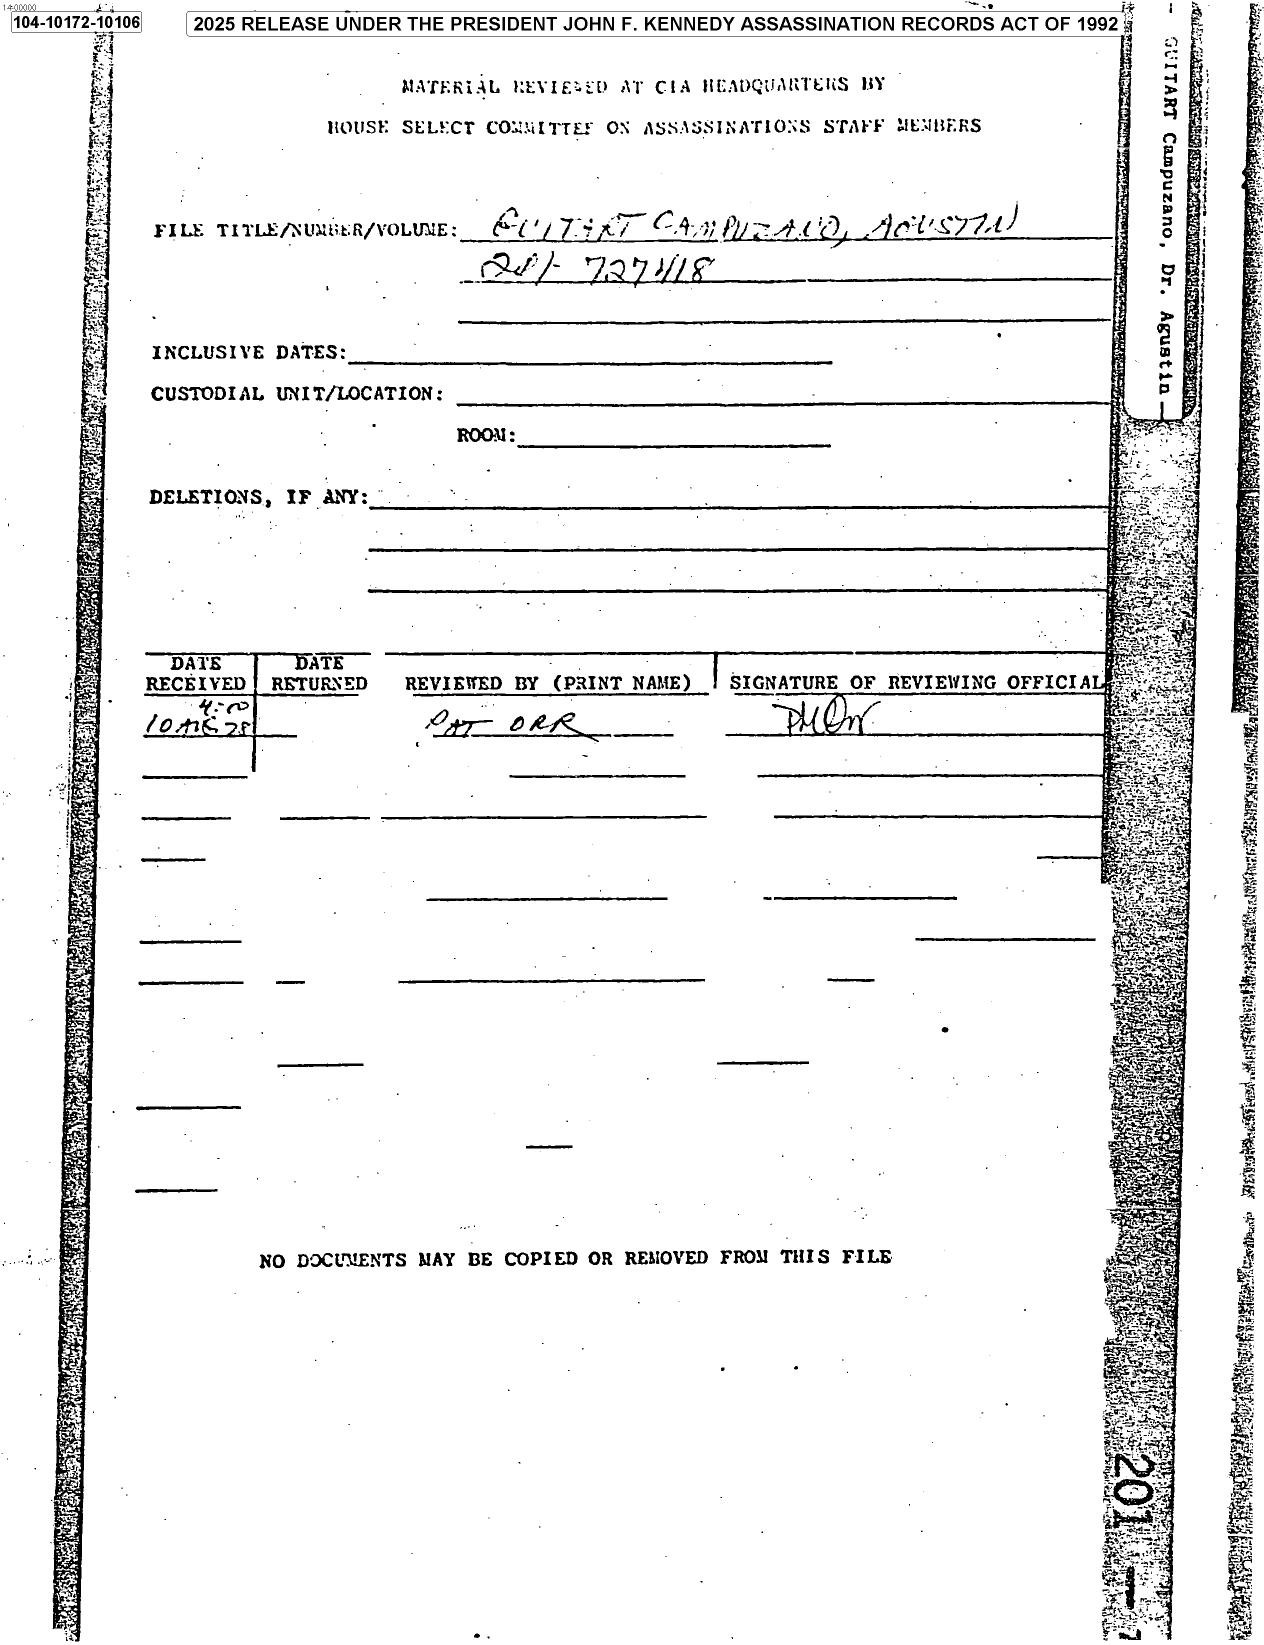 14-00000
104-10172-10106
2025 RELEASE UNDER THE PRESIDENT JOHN F. KENNEDY ASSASSINATION RECORDS ACT OF 1992
MATERIAL REVIEWED AT CIA HEADQUARTERS BY
HOUSE SELECT COMMITTEE ON ASSASSINATIONS STAFF MEMBERS
FILE TITLE/NUMBER/VOLUME: GUITART CAMPUZANO, AGUSTIN
201- 727418
INCLUSIVE DATES:
CUSTODIAL UNIT/LOCATION:
ROOM:
DELETIONS, IF ANY:
DATE RECEIVED
DATE RETURNED
REVIEWED BY (PRINT NAME)
SIGNATURE OF REVIEWING OFFICIAL
4:00
10 AUG 78
PAT ORR
PMOrr
NO DOCUMENTS MAY BE COPIED OR REMOVED FROM THIS FILE
- GUITART Campuzano, Dr. Agustin -
201 — 7